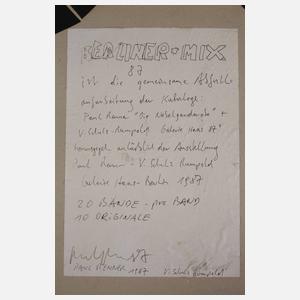 BERLINER-MIX
87
ist die gemeinsame
der Kataloge:
Paul Renner "Die +
V. Schulz-Rumpold Galerie Haas 87"
anlässlich der Ausstellung
Paul Renner - V. Schulz Rumpold
Galerie Haas - Berlin 1987
20 BÄNDE - pro BAND
10 ORIGINALE
87
PAUL RENNER 1987 V. Schulz Rumpold